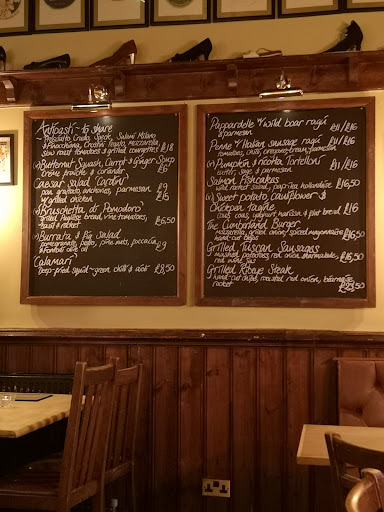 Antipasti - to share
Prosciutto Crudo, Speck, Salami Milano
& Finocchiona, Crostini Tequila, mozzarella
slow roast tomatoes & grilled courgettes £18
(v) Butternut Squash, Carrot & Ginger Soup
crème fraîche & coriander £6
Caesar Salad 'Cardini'
gran anchovies, parmesan £9
w/grilled chicken £16
(v) Bruschetta al Pomodoro
Grilled bread, vine tomatoes,
basil & rocket £6,50
(v) Burrata & Fig Salad
pomegranate, pine nuts, £9
olive oil
'Calamari'
Deep-fried squid - green chilli & aioli £8,50
Pappardelle & wild boar ragù
& parmesan £11/£16
Penne & Italian sausage ragù
tomatoes, chilli, cream, parmesan £11/£16
(v) Pumpkin & ricotta Tortelloni
butter, sage & parmesan £11/£16
Salmon Fishcakes
wild rocket salad, hollandaise £16,50
(v) Sweet potato, cauliflower &
Chickpea Tagine
cous cous, yoghurt harissa & flat bread £16
The Cumberland Burger
Mozzarella, onion/spiced mayonnaise
hand-cut chips £16,50
Grilled Tuscan Sausages
mashed potatoes, red onion marmalade,
red wine jus £16,50
Grilled Ribeye Steak
hand-cut chips, roasted red onion, béarnaise,
rocket £23,50